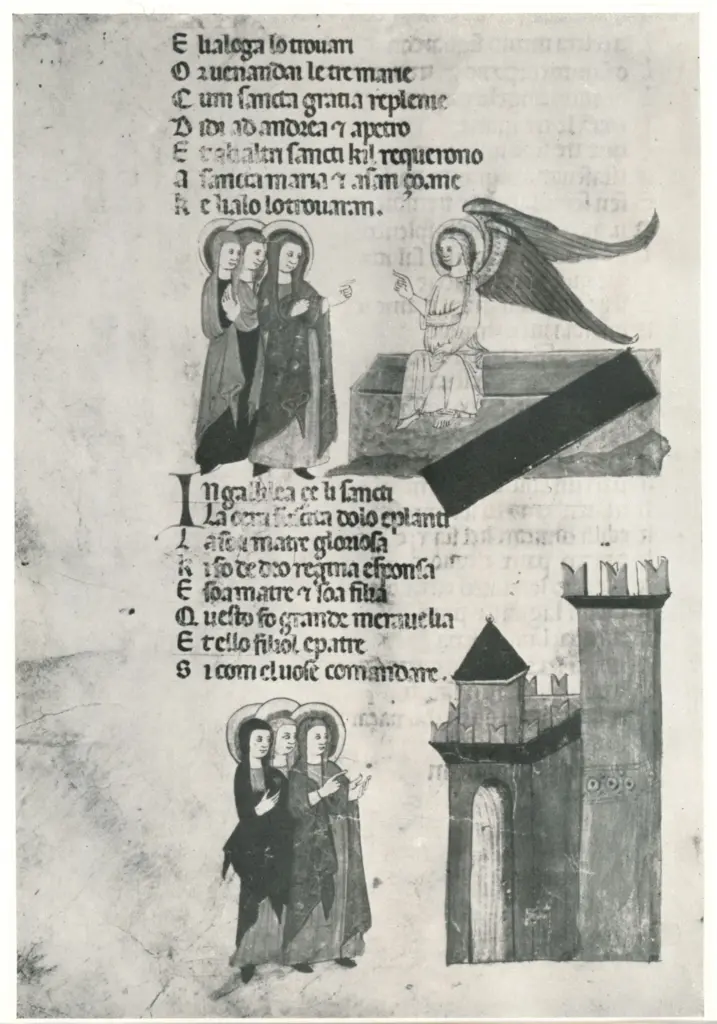 E li aloga lo trouari
O r uenandai le tre marie
C um sancta gratia replenie
D idi ad andrea ⁊ apetro
E altri sancti kil requerono
A sancta maria ⁊ asan çoane
K e li alo lo trouaran.
In galilea ce li sancti
La dolo e planti
L a soa matre gloriosa
K i so de deo regina e sponsa
E soa matre ⁊ soa filia
Q uesto fo grande merauelia
E t ello filiol e patre
S i com el uose comandare.